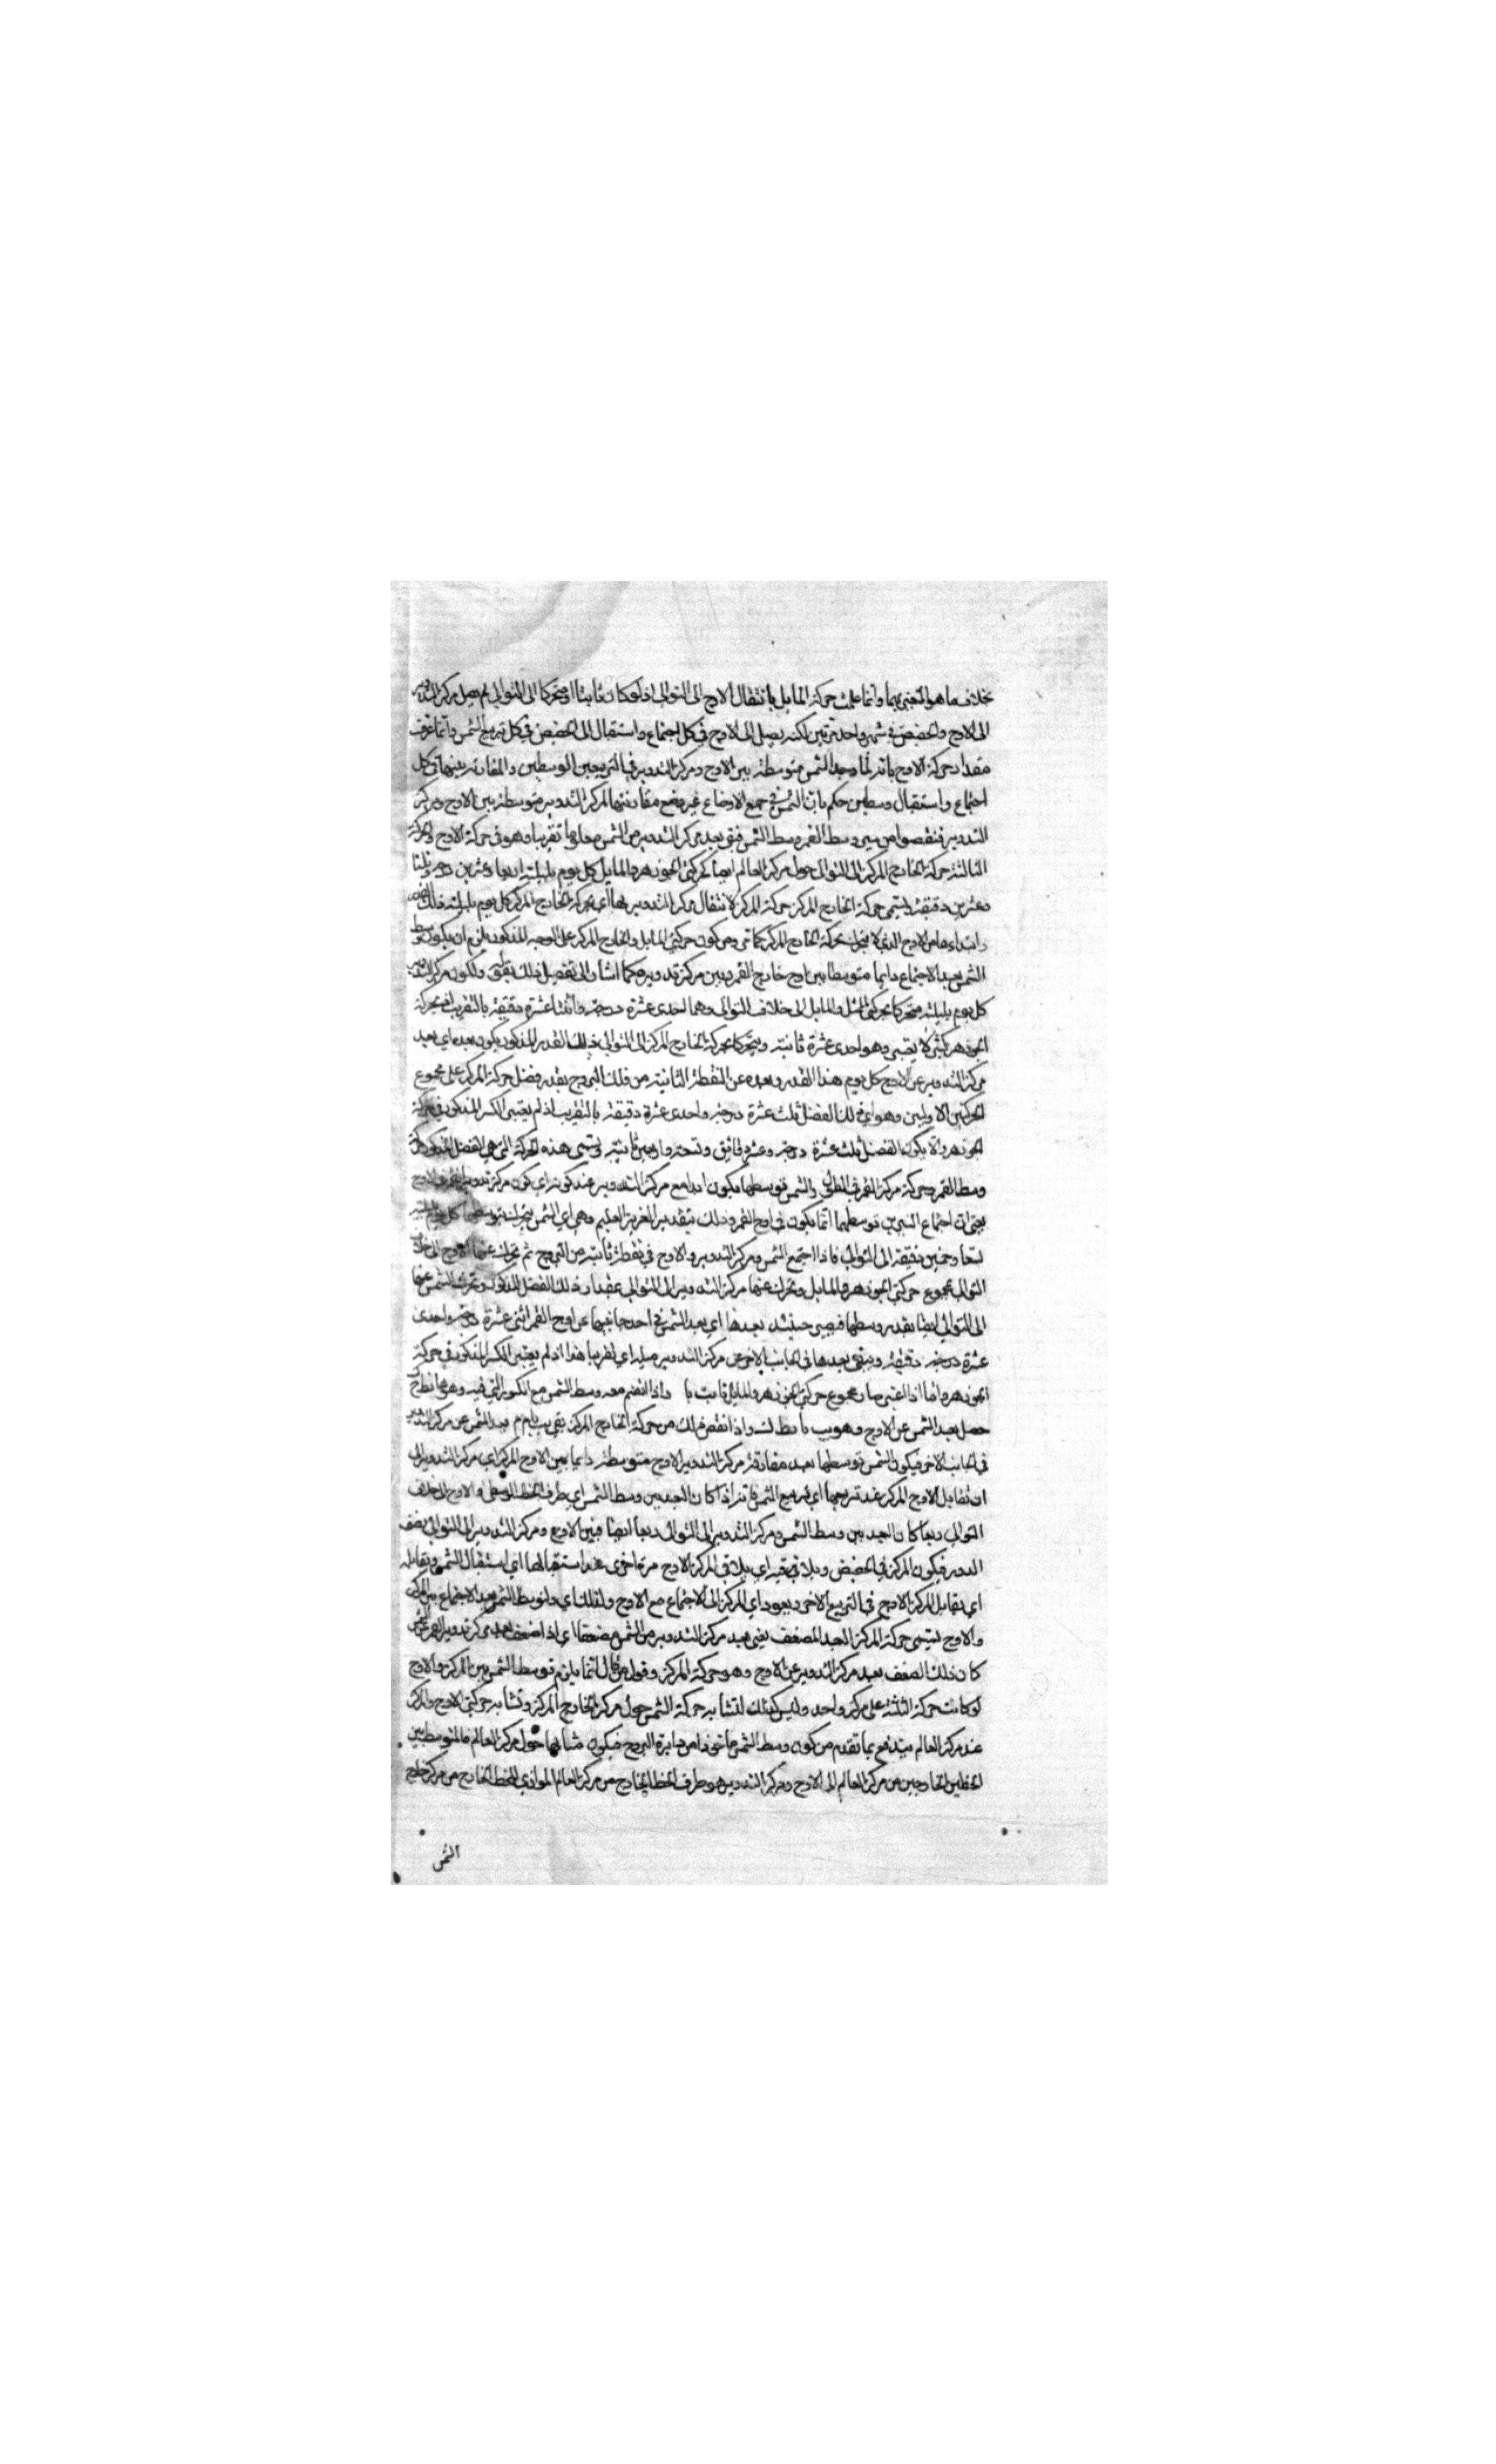 خلاف ما هو المعتبر بهما وانما علمت حركة المايل بانتقال الاوج الى التوالي اذ لو كان ثابتا او متحركا الى التوالي لم يصل مركز التدوير
الى الاوج والحضيض في شهر واحد مرتين لكنه يصل الى الاوج في كل اجتماع واستقبال والى الحضيض في كل تربيع الشمس وانما عرف
مقدار حركة الاوج بانه لما وجد الشمس متوسطة بين الاوج ومركز التدوير في التربيعين الوسطين والمقارنة بينهما في كل
اجتماع واستقبال وسطين حكم بان الشمس في جميع الاوضاع غير وضع مقارنتها لمركز التدوير متوسطة بين الاوج ومركز
التدوير فنقصوا من سير وسط القمر وسط الشمس فبقي بعد مركز التدوير من الشمس تقريبا وهو في حركة الاوج والحركة
الثالثة حركة الخارج المركز الى التوالي حول مركز العالم ايضا كحركتي الجوزهر والمايل كل يوم بليلته اربعا وعشرين درجة وثلثا
وعشرين دقيقة وتسمى حركة الخارج المركز حركة المركز لانتقال مركز التدوير بها اي بحركة الخارج المركز كل يوم بليلته ذلك القدر
وابتداءها من الاوج الذي لا يتحرك بحركة الخارج المركز كما مر ومن كون حركتي المايل والخارج المركز على الوجه المذكور يلزم ان يكون وسط
الشمس بعد الاجتماع دايما متوسطا بين اوج خارج القمر وبين مركز تدويره كما اشار الى تفصيل ذلك بقوله ولكون مركز التدوير
كل يوم بليلته متحركا بحركتي الممثل والمايل الى خلاف التوالي وهما احدى عشرة درجة واثنتا عشرة دقيقة بالتقريب اذ حركة
الجوزهر كسر لا يعتبر وهو احدى عشرة ثانية ويتحركا بحركة الخارج المركز الى التوالي ذلك القدر المذكور يكون بعده اي بعد
مركز التدوير عن الاوج كل يوم هذا القدر وبعده عن النقطة الثابتة من فلك البروج بقدر فضل حركة المركز على مجموع
الحركتين الاوليين وهو اي ذلك الفضل ثلث عشرة درجة واحدى عشرة دقيقة بالتقريب اذ لم يعتبر الكسر المذكور في حركة
الجوزهر والا يكون الفضل ثلث عشرة درجة وعشر دقايق وتسعة واربعين ثانية وتسمى هذه الحركة التي هي الفضل المذكور حركة
وسط القمر وحركة مركز القمر في الطول والشمس بتوسطها يكون ابدا مع مركز التدوير عند كونه اي كون مركز تدوير القمر في الاوج
يعني ان اجتماع النيرين بتوسطهما انما يكون في اوج القمر وذلك بتقدير العزيز العليم وهي اي الشمس يتحرك بتوسطها كل يوم بليلته
تسعا وخمسين دقيقة الى التوالي فاذا اجتمع الشمس ومركز التدوير والاوج في نقطة ثابتة من البروج ثم تحرك عنها الاوج الى خلاف
التوالي بمجموع حركتي الجوزهر والمايل وتحرك عنها مركز التدوير الى التوالي بمقدار ذلك الفضل المذكور وتحرك الشمس عنها
الى التوالي ايضا بقدر وسطها فيصير حينئذ بعدها اي بعد الشمس في احد جانبيها عن اوج القمر اثنتي عشرة درجة واحدى
عشرة درجة دقيقة ويبقى بعدها في الجانب الاخر عن مركز التدوير مثله اي تقريبا هذا اذ لم يعتبر الكسر المذكور في حركة
الجوزهر واما اذا اعتبر صار مجموع حركتي الجوزهر والمايل واذا انضم معه وسط الشمس مع الكسور التي فيه وهو
حصل بعد الشمس عن الاوج وهو واذا انقص ذلك من حركة الخارج المركز بقي بعد الشمس عن مركز التدوير
في الجانب الاخر فيكون الشمس بتوسطها بعد مفارقة مركز التدوير الاوج متوسطة دايما بين الاوج المركز اي مركز التدوير الى
ان تقابل الاوج المركز عند تربيعها اي تربيع الشمس فانه اذا كان البعد بين وسط الشمس اي طرف الخط الوسطي والاوج الى خلاف
التوالي ربعا كان البعد بين وسط الشمس ومركز التدوير الى التوالي ربعا ايضا فبين الاوج ومركز التدوير الى التوالي نصف
الدور فيكون المركز في الحضيض ويلاقيه اي يلاقي المركز الاوج مرة اخرى عند استقبالها اي استقبال الشمس ويقابله
اي يقابل المركز الاوج في التربيع الاخر ويعود اي المركز الى الاجتماع مع الاوج ولذلك اي ولتوسط الشمس بعد الاجتماع بين المركز
والاوج تسمى حركة المركز البعد المضعف يعني بعد مركز التدوير من الشمس مضعفا اي اذا اضعف بعد مركز تدوير القمر عن الشمس
كان ذلك الضعف بعد مركز التدوير عن الاوج وهو حركة المركز وقول من قال انما يلزم توسط الشمس بين المركز والاوج
لو كانت حركة الثلثة على مركز واحد وليس كذلك لتشابه حركة الشمس حول مركز الخارج المركز وتشابه حركتي الاوج والمركز
عند مركز العالم مندفع بما تقدم من كون وسط الشمس ماخوذا من دايرة البروج فيكون متشابها حول مركز العالم فالمتوسط بين
الخطين الخارجين من مركز العالم الى الاوج ومركز التدوير هو طرف الخط الخارج من مركز العالم الموازي للخط الخارج من مركز خارج
الشمس